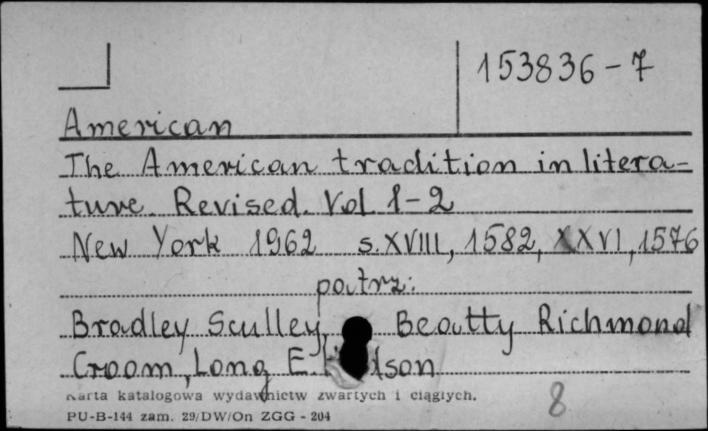 153836-7
American
The American tradition in litera-
ture. Revised. Vol 1-2
New York 1962 s. XVIII, 1582, XXVI, 1576
patrz:
Bradley Sculley, Beatty Richmond
Croom, Long E.
Karta katalogowa wydawnictw zwartych i ciągłych.
PU-B-144 zam. 29/DW/On ZGG - 204
8